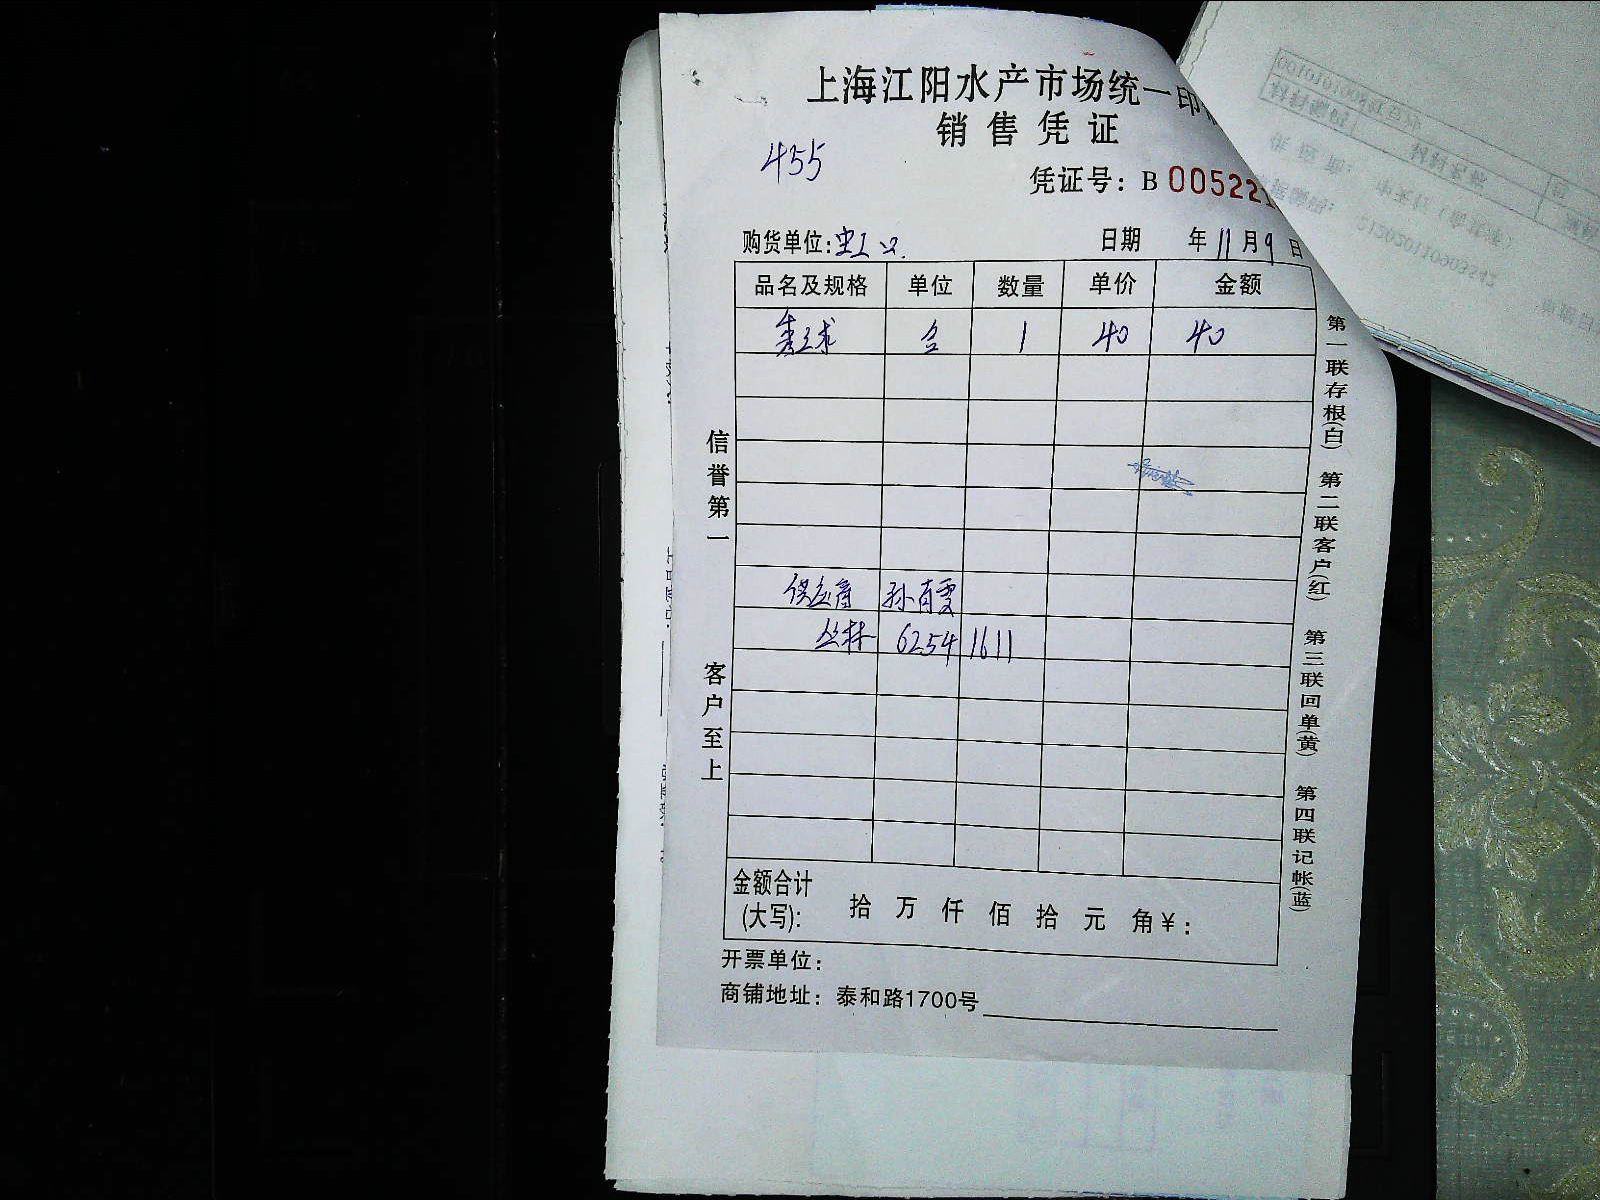 上海江阳水产市场统一印
销售凭证
455
凭证号：B 005221
购货单位：虹口
日期 年11月9日
品名及规格 单位 数量 单价 金额
1 40 40
供应商 孙育雯
丛林 62541611
信誉第一
客户至上
第一联存根(白) 第二联客户(红) 第三联回单(黄) 第四联记帐(蓝)
金额合计
(大写)： 拾 万 仟 佰 拾 元 角 ¥：
开票单位：
商铺地址：泰和路1700号